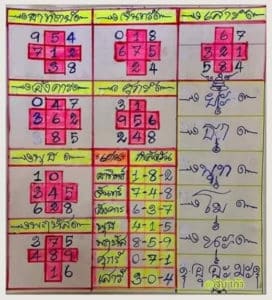 อาทิตย์
9 5 4
7 1 2
3 8
จันทร์
0 1 8
6 7 5
2 4
เสาร์
6 7
3 2 1
5 8 4
อังคาร
0 4 7
3 6 2
8 5
ศุกร์
3 1
9 5 6
2 4 8
พุธ
1 0
3 4 5
6 2 8
พฤหัสฯ
3 7 5
4 8 9
1 6
อาทิตย์ 1-8-2
จันทร์ 7-4-8
อังคาร 6-3-7
พุธ 4-1-5
พฤหัสฯ 8-5-9
ศุกร์ 0-7-1
เสาร์ 3-0-4
นะ
ธา
พุท
โม
นะ